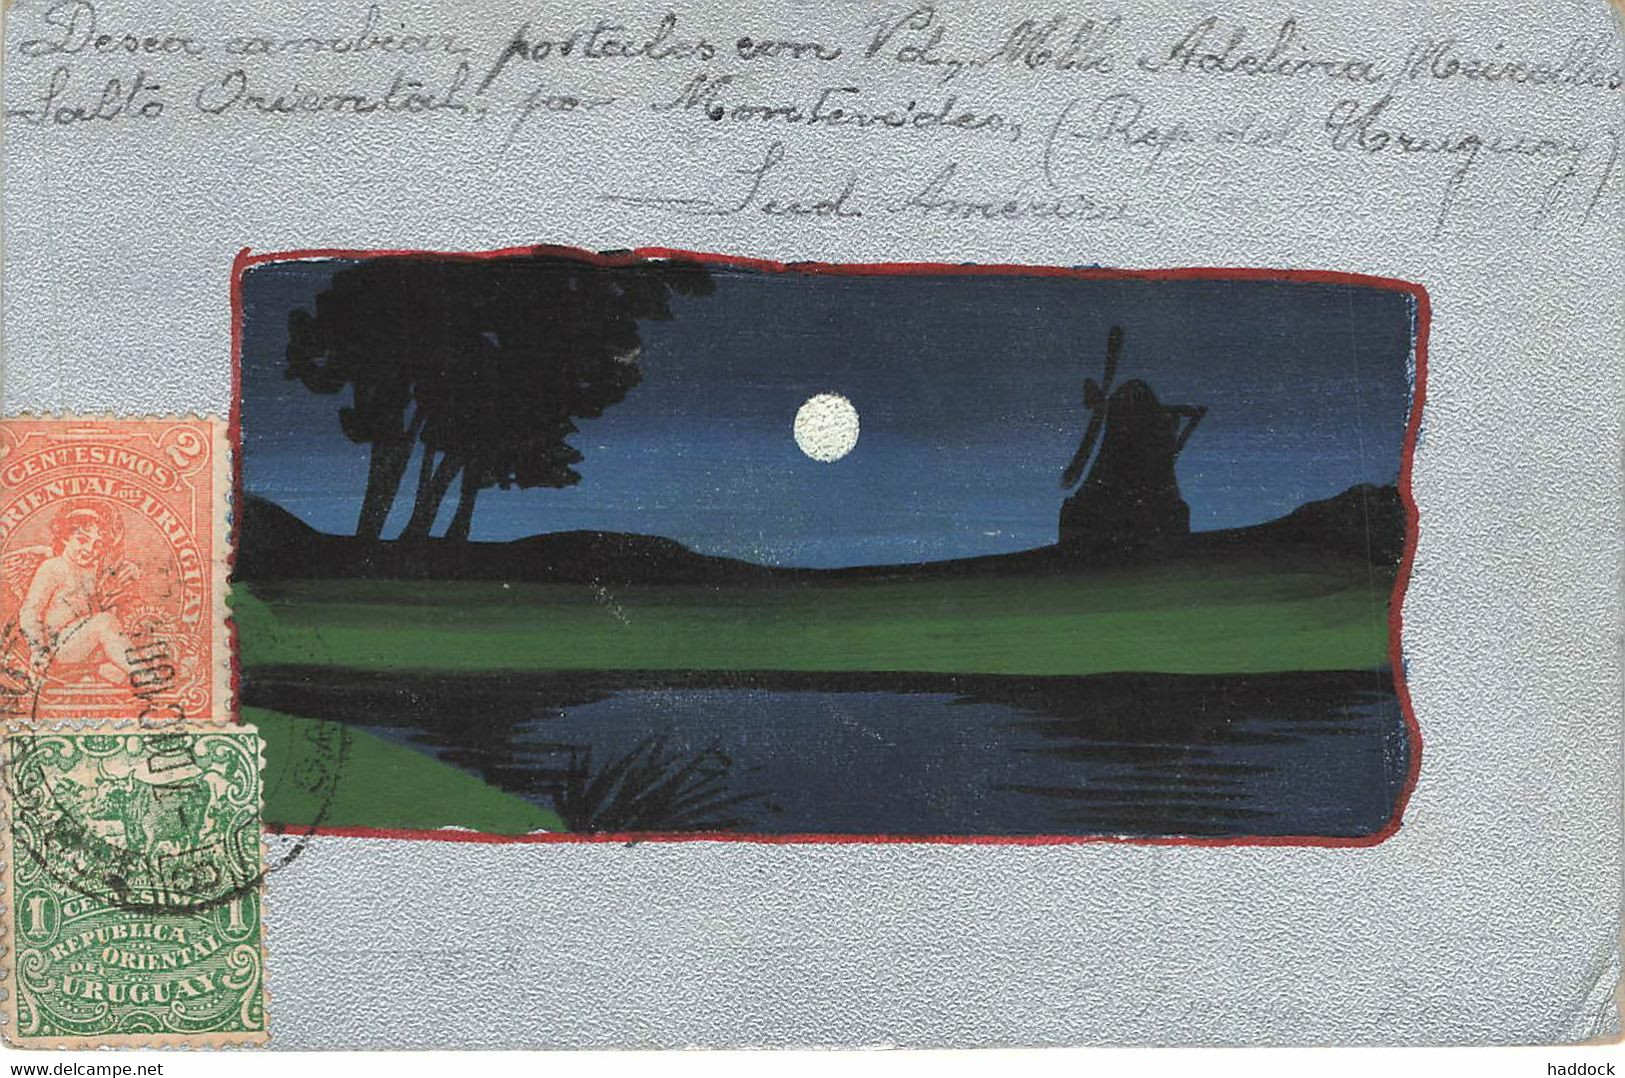 Desea cambiar postales con Vd, Mlle Adelina Meirelles
Salto Oriental, por Montevideo, (Rep del Uruguay)
Sud. America
2
CENTESIMOS.
ORIENTAL DEL URUGUAY
1 CENTESIMO 1
REPUBLICA
ORIENTAL
DEL
URUGUAY
haddock